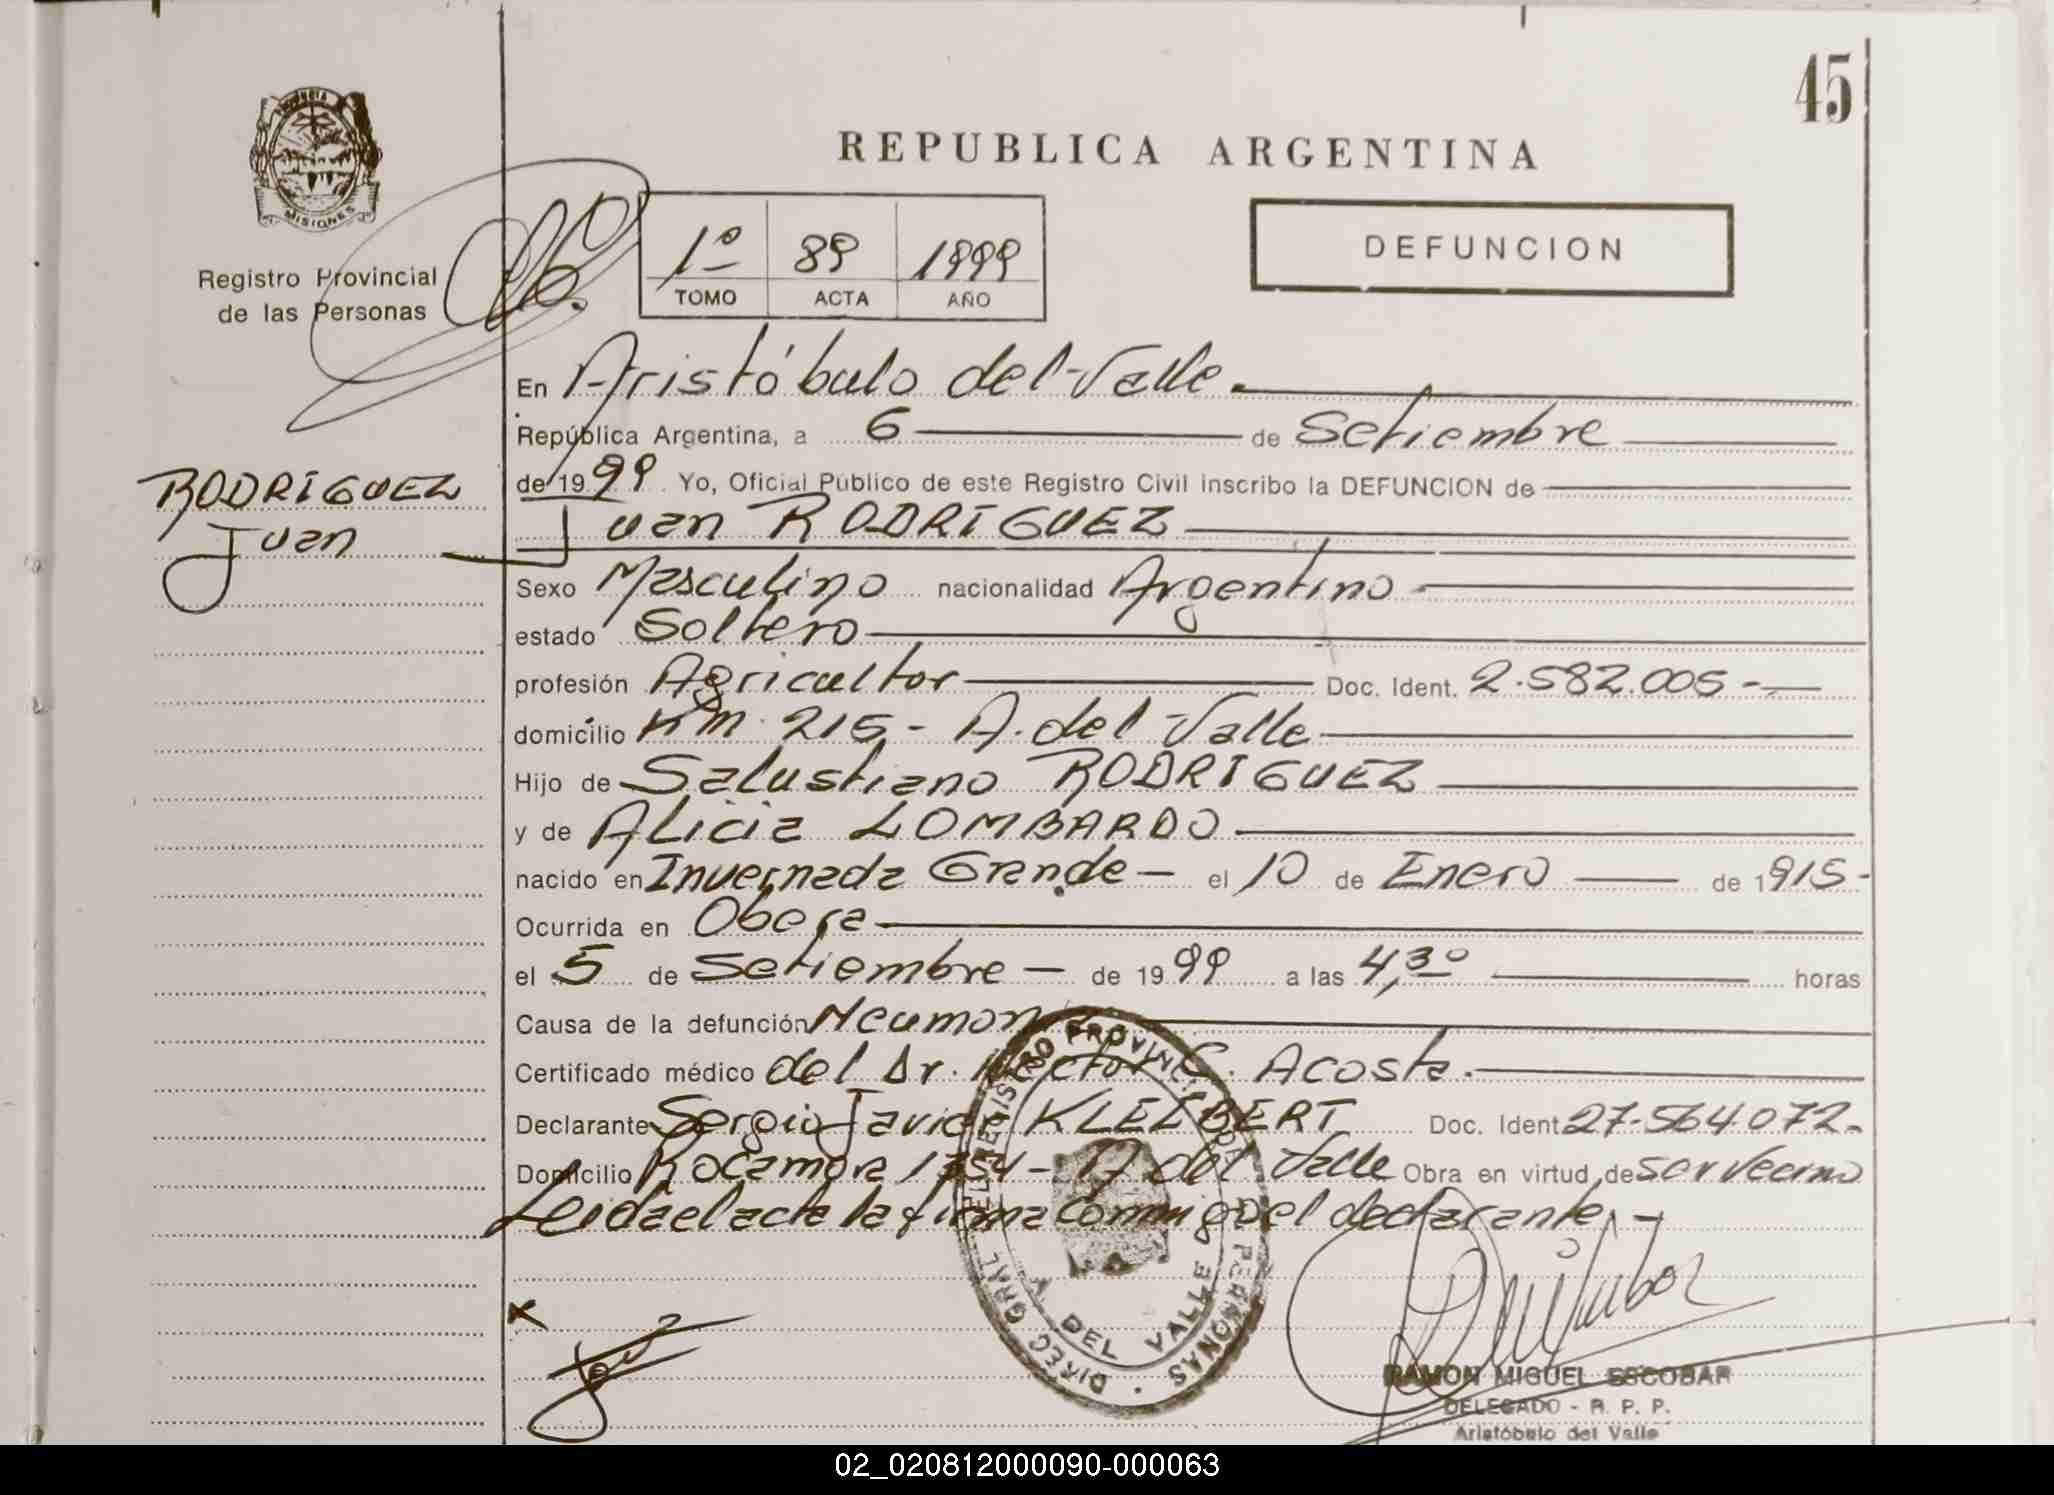 45
REPUBLICA ARGENTINA
PROVINCIA
MISIONES
Registro Provincial
de las Personas
1º 89 1999
TOMO ACTA AÑO
DEFUNCION
En Aristóbulo del Valle.
República Argentina, a 6 de Setiembre
de 1999 Yo, Oficial Público de este Registro Civil inscribo la DEFUNCION de
RODRIGUEZ
Juan
Juan RODRIGUEZ
Sexo Masculino nacionalidad Argentino
estado Soltero
profesión Agricultor Doc. Ident. 2.582.005.-
domicilio Km. 215- A. del Valle
Hijo de Salustiano RODRIGUEZ
y de Alicia LOMBARDO
nacido en Invernada Grande - el 10 de Enero de 1915-
Ocurrida en Obera
el 5 de Setiembre - de 1999 a las 4,30 horas
Causa de la defunción
Certificado médico del Dr. Hector C. Acosta.
Declarante Sergio Javier KLEIBERT Doc. Ident 27.564.072.
Domicilio Rocamora - A del Valle Obra en virtud de ser vecino
Leida el acta la firma conmigo el declarante.-
DIREC GRAL DEL REGISTRO PROVINCIAL DE LAS PERSONAS
DEL VALLE
x
RAMON MIGUEL ESCOBAR
DELEGADO - R. P. P.
Aristóbulo del Valle
02_020812000090-000063